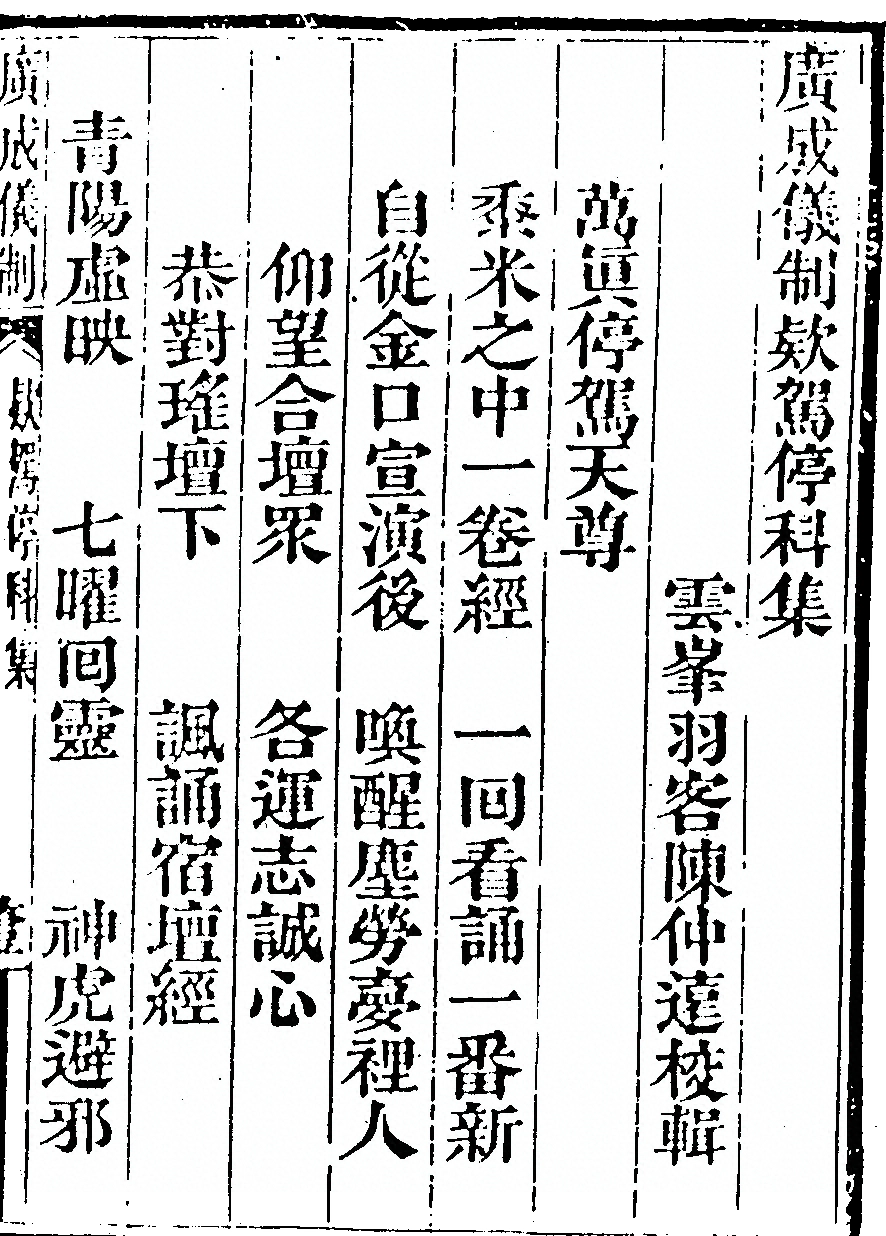 廣成儀制欵駕停科集
雲峯羽客陳仲遠校輯
萬眞停駕天尊
黍米之中一卷經 一回看誦一番新
自從金口宣演後 喚醒塵勞夢裡人
仰望合壇眾 各運志誠心
恭對瑤壇下 諷誦宿壇經
青陽虛映 七曜回靈 神虎避邪
廣成儀制 欵駕停科集